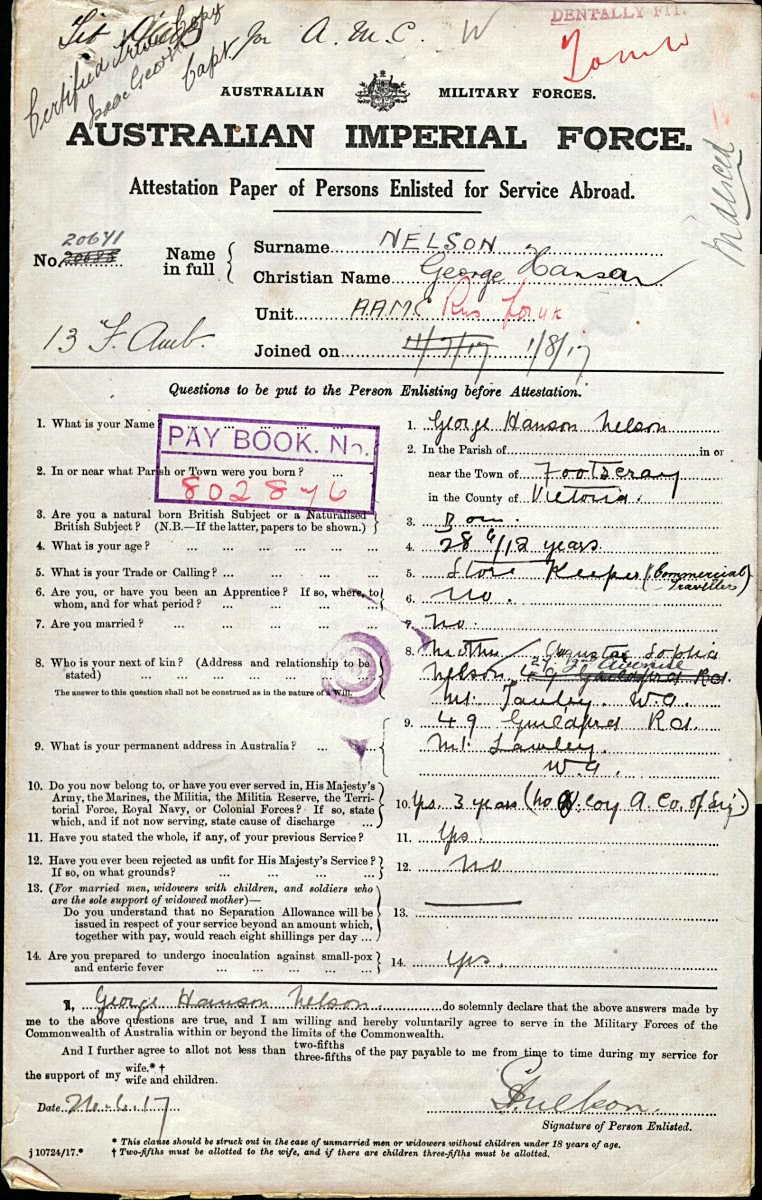 Certified True Copy
Capt for A. M. C. W
DENTALLY FIT.
AUSTRALIAN MILITARY FORCES.
AUSTRALIAN IMPERIAL FORCE.
Attestation Paper of Persons Enlisted for Service Abroad.
Indexed
No. 20641
Name in full { Surname NELSON
Christian Name George Hanson
Unit AAMC
13 F. Amb.
Joined on 11/7/17 1/8/17
Questions to be put to the Person Enlisting before Attestation.
1. What is your Name? 1. George Hanson Nelson
PAY BOOK. No.
802876
2. In or near what Parish or Town were you born? ... 2. In the Parish of ... in or
near the Town of Footscray
in the County of Victoria.
3. Are you a natural born British Subject or a Naturalised British Subject? (N.B.—If the latter, papers to be shown.) 3. Born.
4. What is your age? ... 4. 28 6/12 years
5. What is your Trade or Calling? ... 5. Store Keeper (Commercial Traveller)
6. Are you, or have you been an Apprentice? If so, where, to whom, and for what period? ... 6. No.
7. Are you married? ... 7. No.
8. Who is your next of kin? (Address and relationship to be stated) ... 8. Mother Augusta Sophia
Nelson, 49 Guildford Rd.
Avenue
Mt. Lawley. W.A.
The answer to this question shall not be construed as in the nature of a Will.
9. What is your permanent address in Australia? ... 9. 49 Guildford Rd.
Mt. Lawley.
W.A.
10. Do you now belong to, or have you ever served in, His Majesty's
Army, the Marines, the Militia, the Militia Reserve, the Terri-
torial Force, Royal Navy, or Colonial Forces? If so, state
which, and if not now serving, state cause of discharge ... 10. Yes. 3 years (No Coy A. Co. of Sig.)
11. Have you stated the whole, if any, of your previous Service? 11. Yes.
12. Have you ever been rejected as unfit for His Majesty's Service?
If so, on what grounds? ... 12. No
13. (For married men, widowers with children, and soldiers who
are the sole support of widowed mother)—
Do you understand that no Separation Allowance will be
issued in respect of your service beyond an amount which,
together with pay, would reach eight shillings per day ... 13.
14. Are you prepared to undergo inoculation against small-pox
and enteric fever ... 14. Yes.
I, George Hanson Nelson do solemnly declare that the above answers made by
me to the above questions are true, and I am willing and hereby voluntarily agree to serve in the Military Forces of the
Commonwealth of Australia within or beyond the limits of the Commonwealth.
And I further agree to allot not less than two-fifths three-fifths of the pay payable to me from time to time during my service for
the support of my wife.* † wife and children.
Date 20.6.17 GHNelson.
Signature of Person Enlisted.
j 10724/17.*
* This clause should be struck out in the case of unmarried men or widowers without children under 18 years of age.
† Two-fifths must be allotted to the wife, and if there are children three-fifths must be allotted.